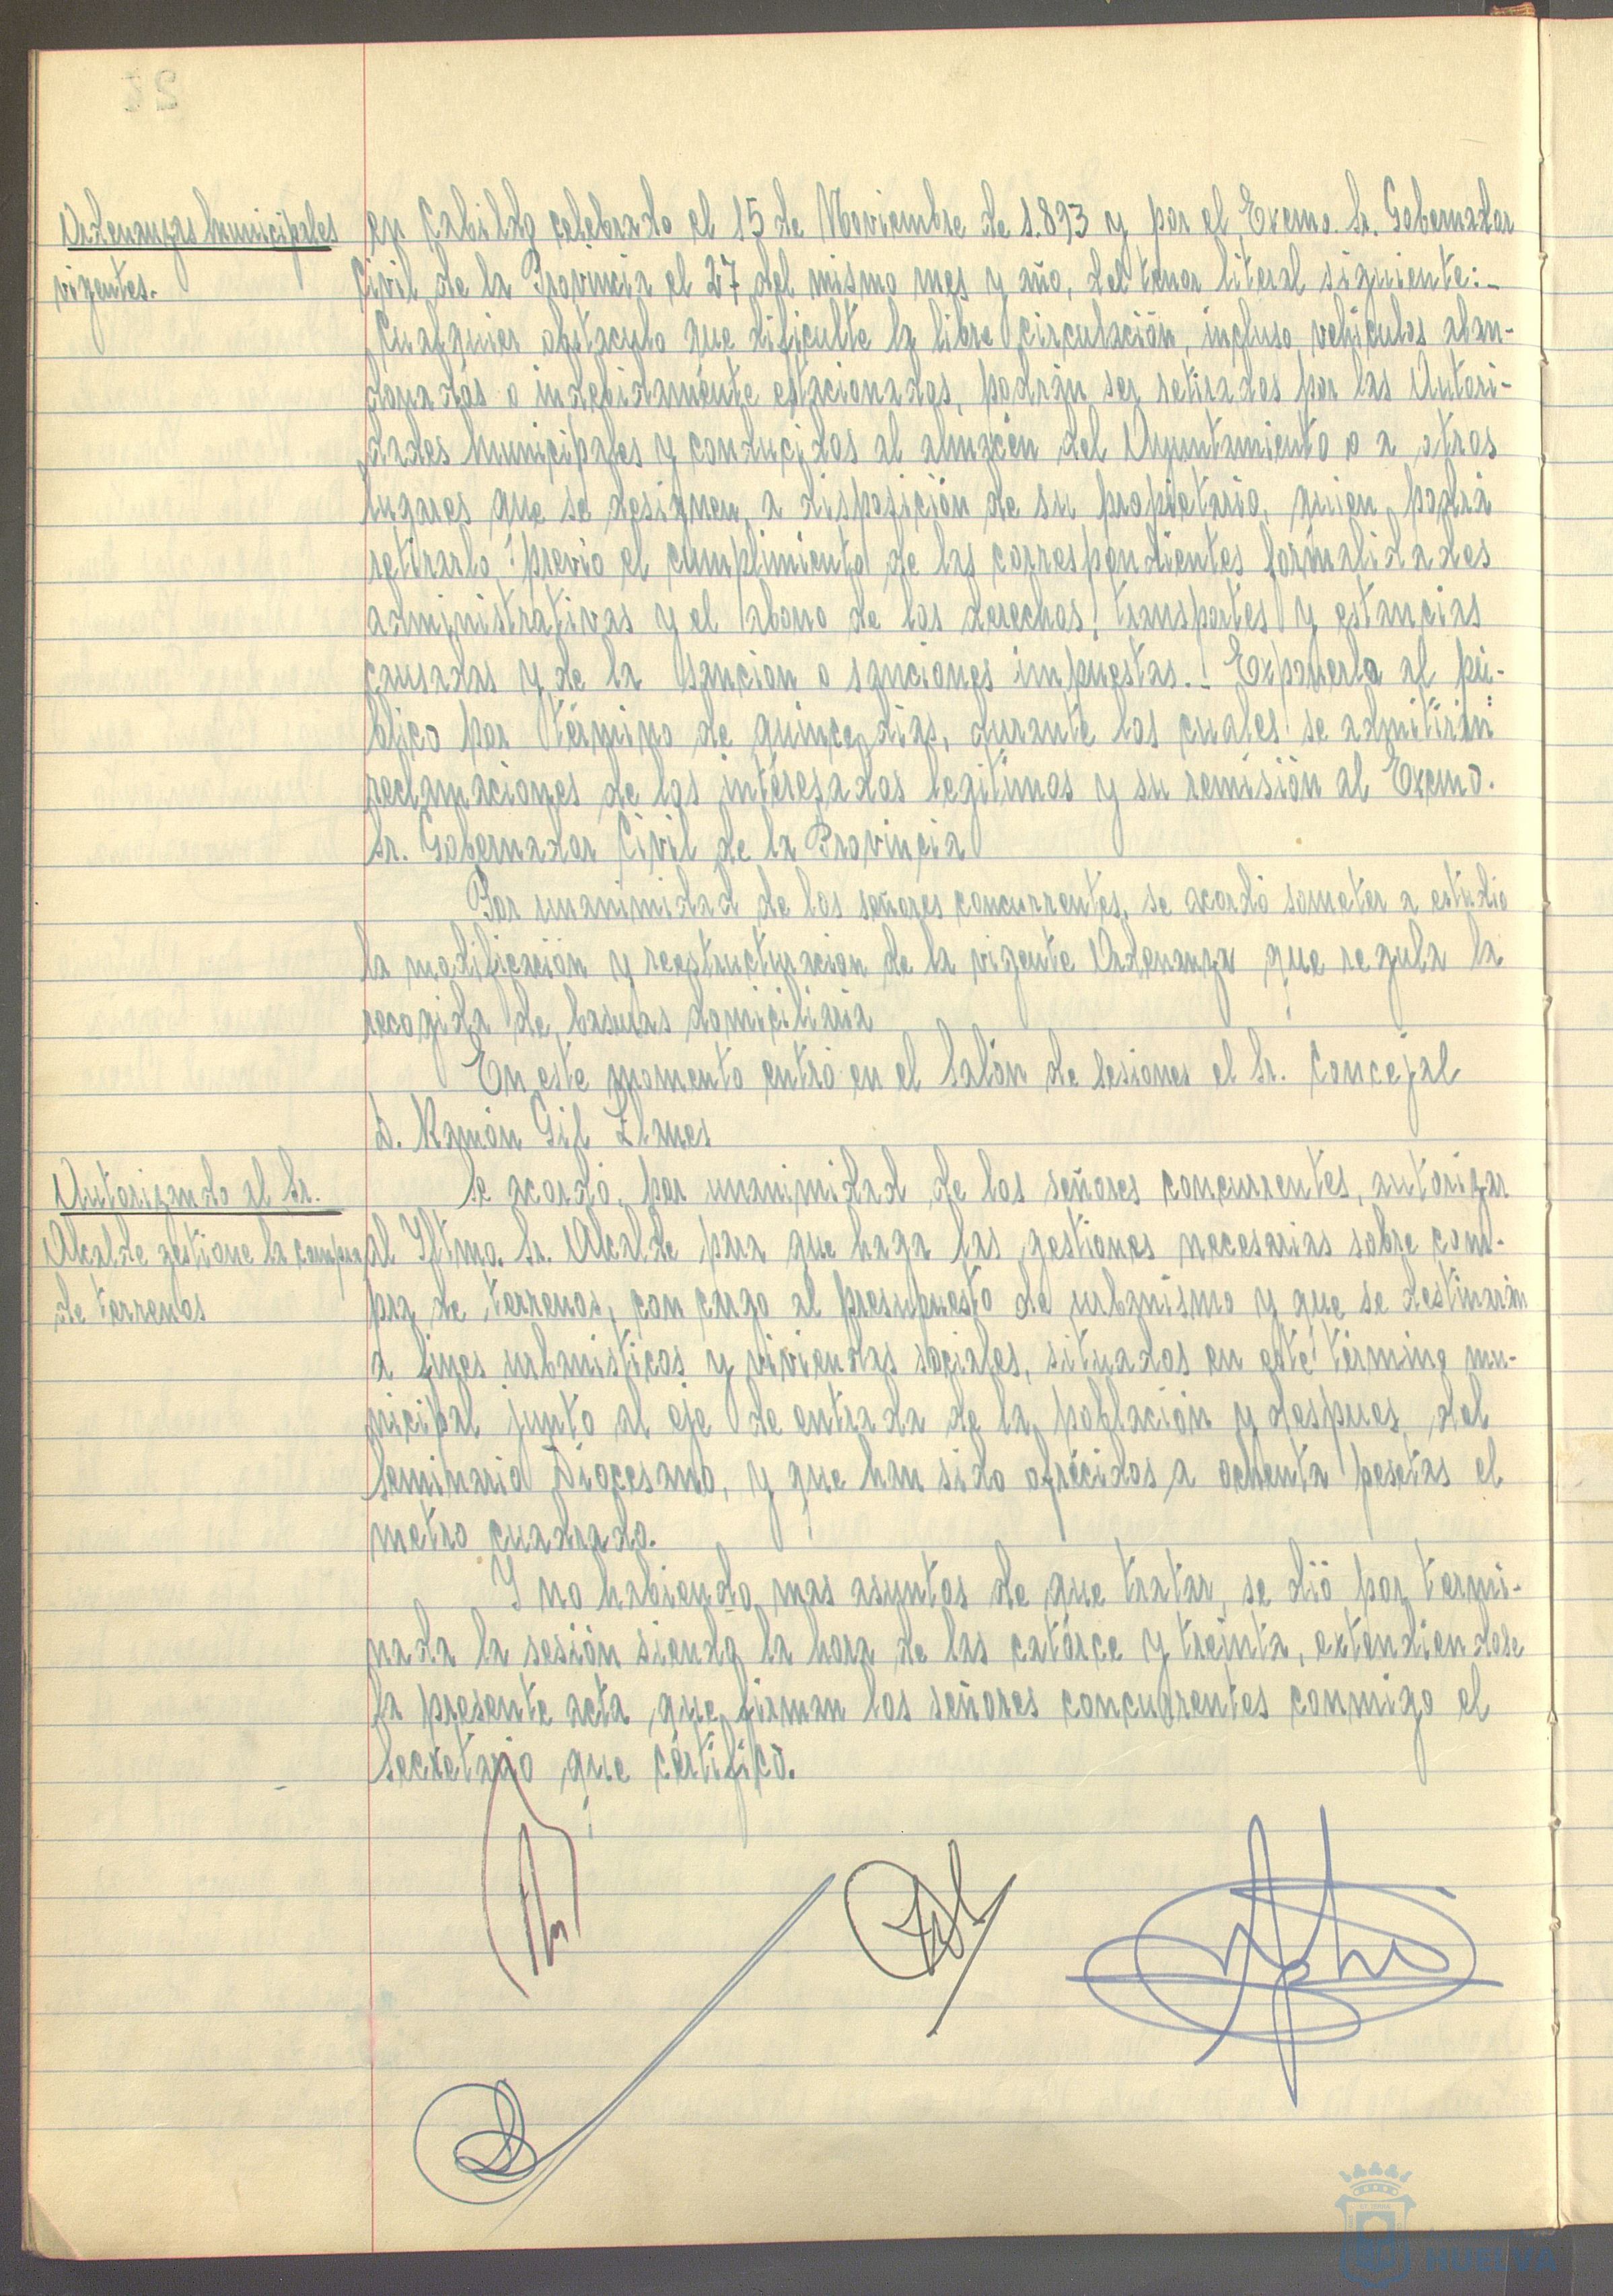 Ordenanzas Municipales
vigentes.
en Cabildo celebrado el 15 de Noviembre de 1.893 y por el Excmo. Sr. Gobernador
Civil de la Provincia el 27 del mismo mes y año, del tenor literal siguiente:-
Cualquier obstaculo que dificulte la libre circulación, incluso vehículos aban-
donados o indebidamente estacionados, podrán ser retirados por las Autori-
dades Municipales y conducidos al almacén del Ayuntamiento o a otros
lugares que se designen, a disposición de su propietario, quien podrá
retirarlo, previo el cumplimiento de las correspondientes formalidades
administrativas y el abono de los derechos, transportes y estancias
causadas y de la sancion o sanciones impuestas. Exponerla al pú-
blico por término de quince dias, durante los cuales se admitirán
reclamaciones de los interesados legitimos y su remisión al Excmo.
Sr. Gobernador Civil de la Provincia
Por unanimidad de los señores concurrentes, se acordó someter a estudio
la modificación y reestructuracion de la vigente Ordenanza que regula la
recogida de basuras domiciliaria
En este momento entró en el Salón de Sesiones el Sr. Concejal
D. Ramón Gil Llanes
Autorizando al Sr.
Alcalde gestione la compra
de terrenos
Se acordó, por unanimidad de los señores concurrentes, autorizar
al Iltmo. Sr. Alcalde para que haga las gestiones necesarias sobre com-
pra de terrenos, con cargo al presupuesto de urbanismo y que se destinarán
a fines urbanisticos y viviendas sociales, situados en este término mu-
nicipal junto al eje de entrada de la población y despues del
Seminario Diocesano, y que han sido ofrecidos a ochenta pesetas el
metro cuadrado.
Y no habiendo mas asuntos de que tratar, se dió por termi-
nada la sesión siendo la hora de las catorce y treinta, extendiendose
la presente acta que firman los señores concurrentes conmigo el
Secretario que certifico.
HUELVA